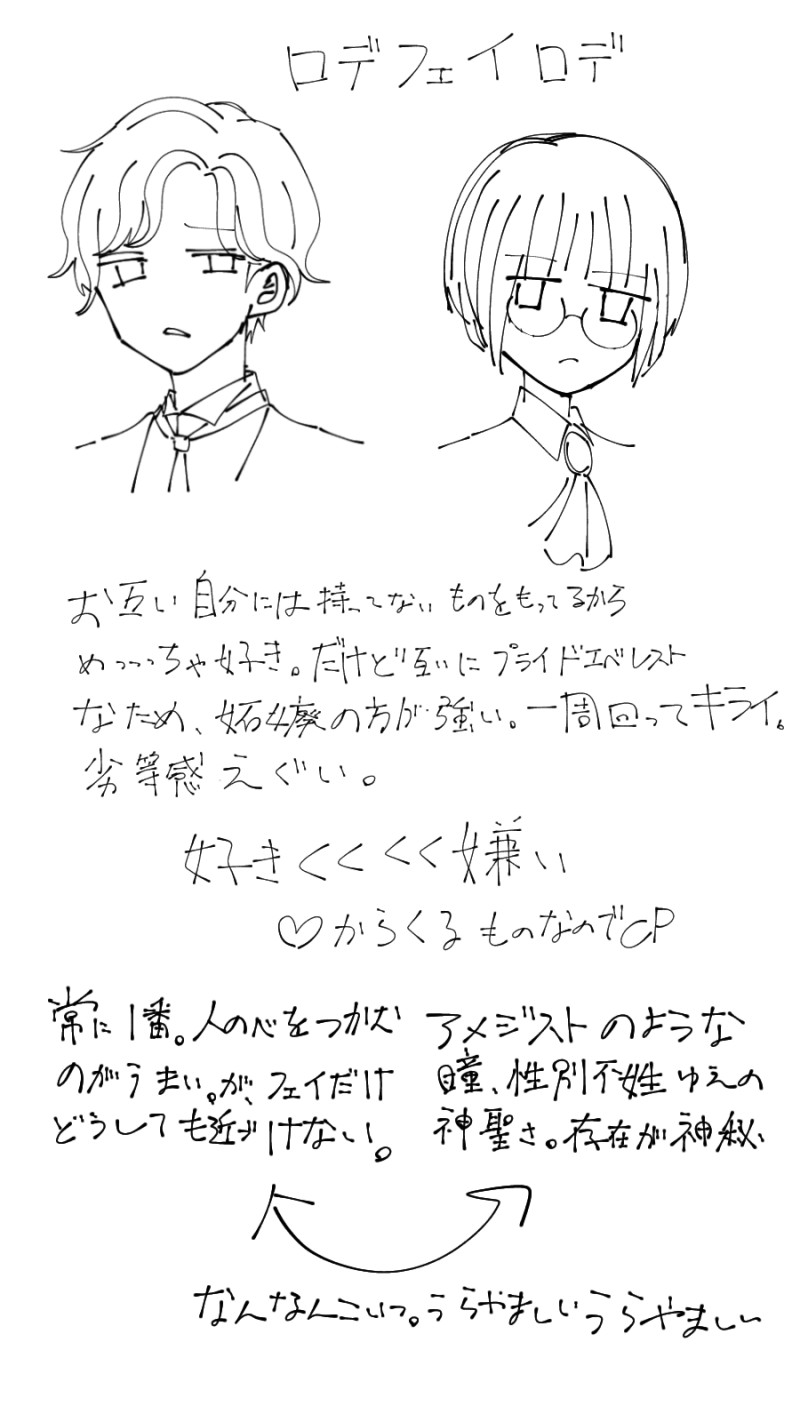 ロデフェイロデ
お互い自分には持ってないものをもってるから
めっっっちゃ好き。だけど互いにプライドエベレスト
なため、妬の方が強い。一周回ってキライ。
劣等感えぐい。
好きくくくく嫌い
♡からくるものなのでCP
常に1番。人の心をつかむ
のがうまい。が、フェイだけ
どうしても近づけない。
アメジストのような
瞳、性別不姓ゆえの
神聖さ。存在が神秘
なんなんこいつ。うらやましいうらやましい